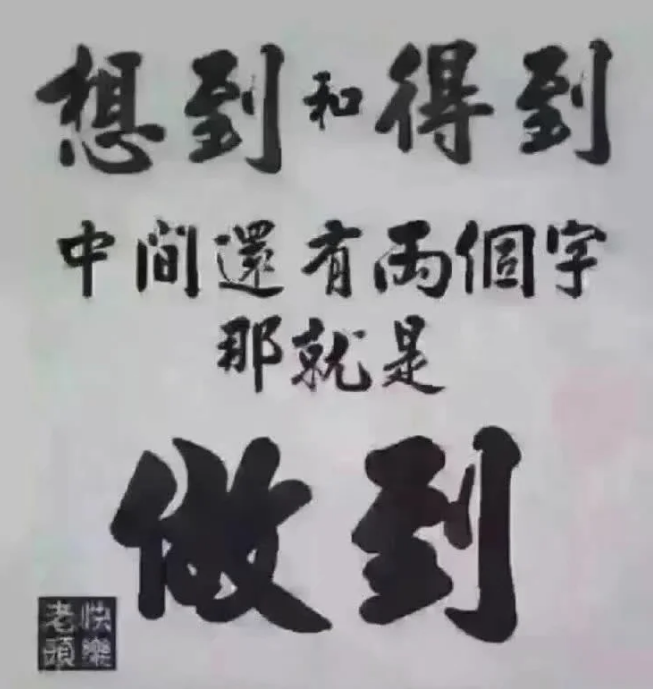 想到和得到
中間還有兩個字
那就是
做到
快樂
老頭